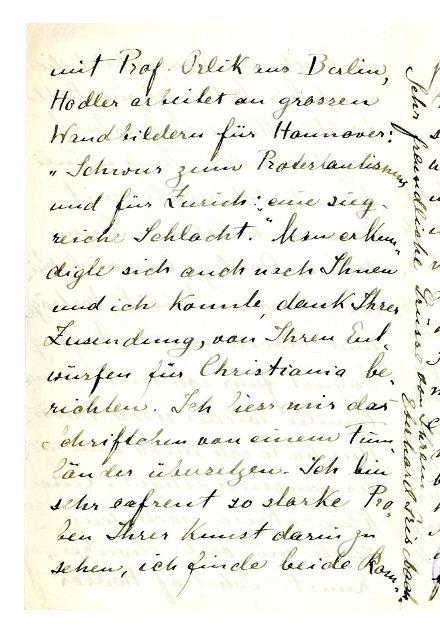 mit Prof. Orlik aus Berlin,
Hodler arbeitet an grossen
Wandbildern für Hannover:
„Schwur zum Protestantismus
und für Zürich: „eine sieg-
reiche Schlacht." Man erkun-
digte sich auch nach Ihnen
und ich konnte, dank Ihrer
Zusendung, von Ihren Ent-
würfen für Christiania be-
richten. Ich liess mir das
Schriftchen von einem Finn-
länder übersetzen. Ich bin
sehr erfreut so starke Pro-
ben Ihrer Kunst darin zu
sehen, ich finde beide Kom-
Sehr freundliche Grüsse von Ihrem
Eberhard Grisebach